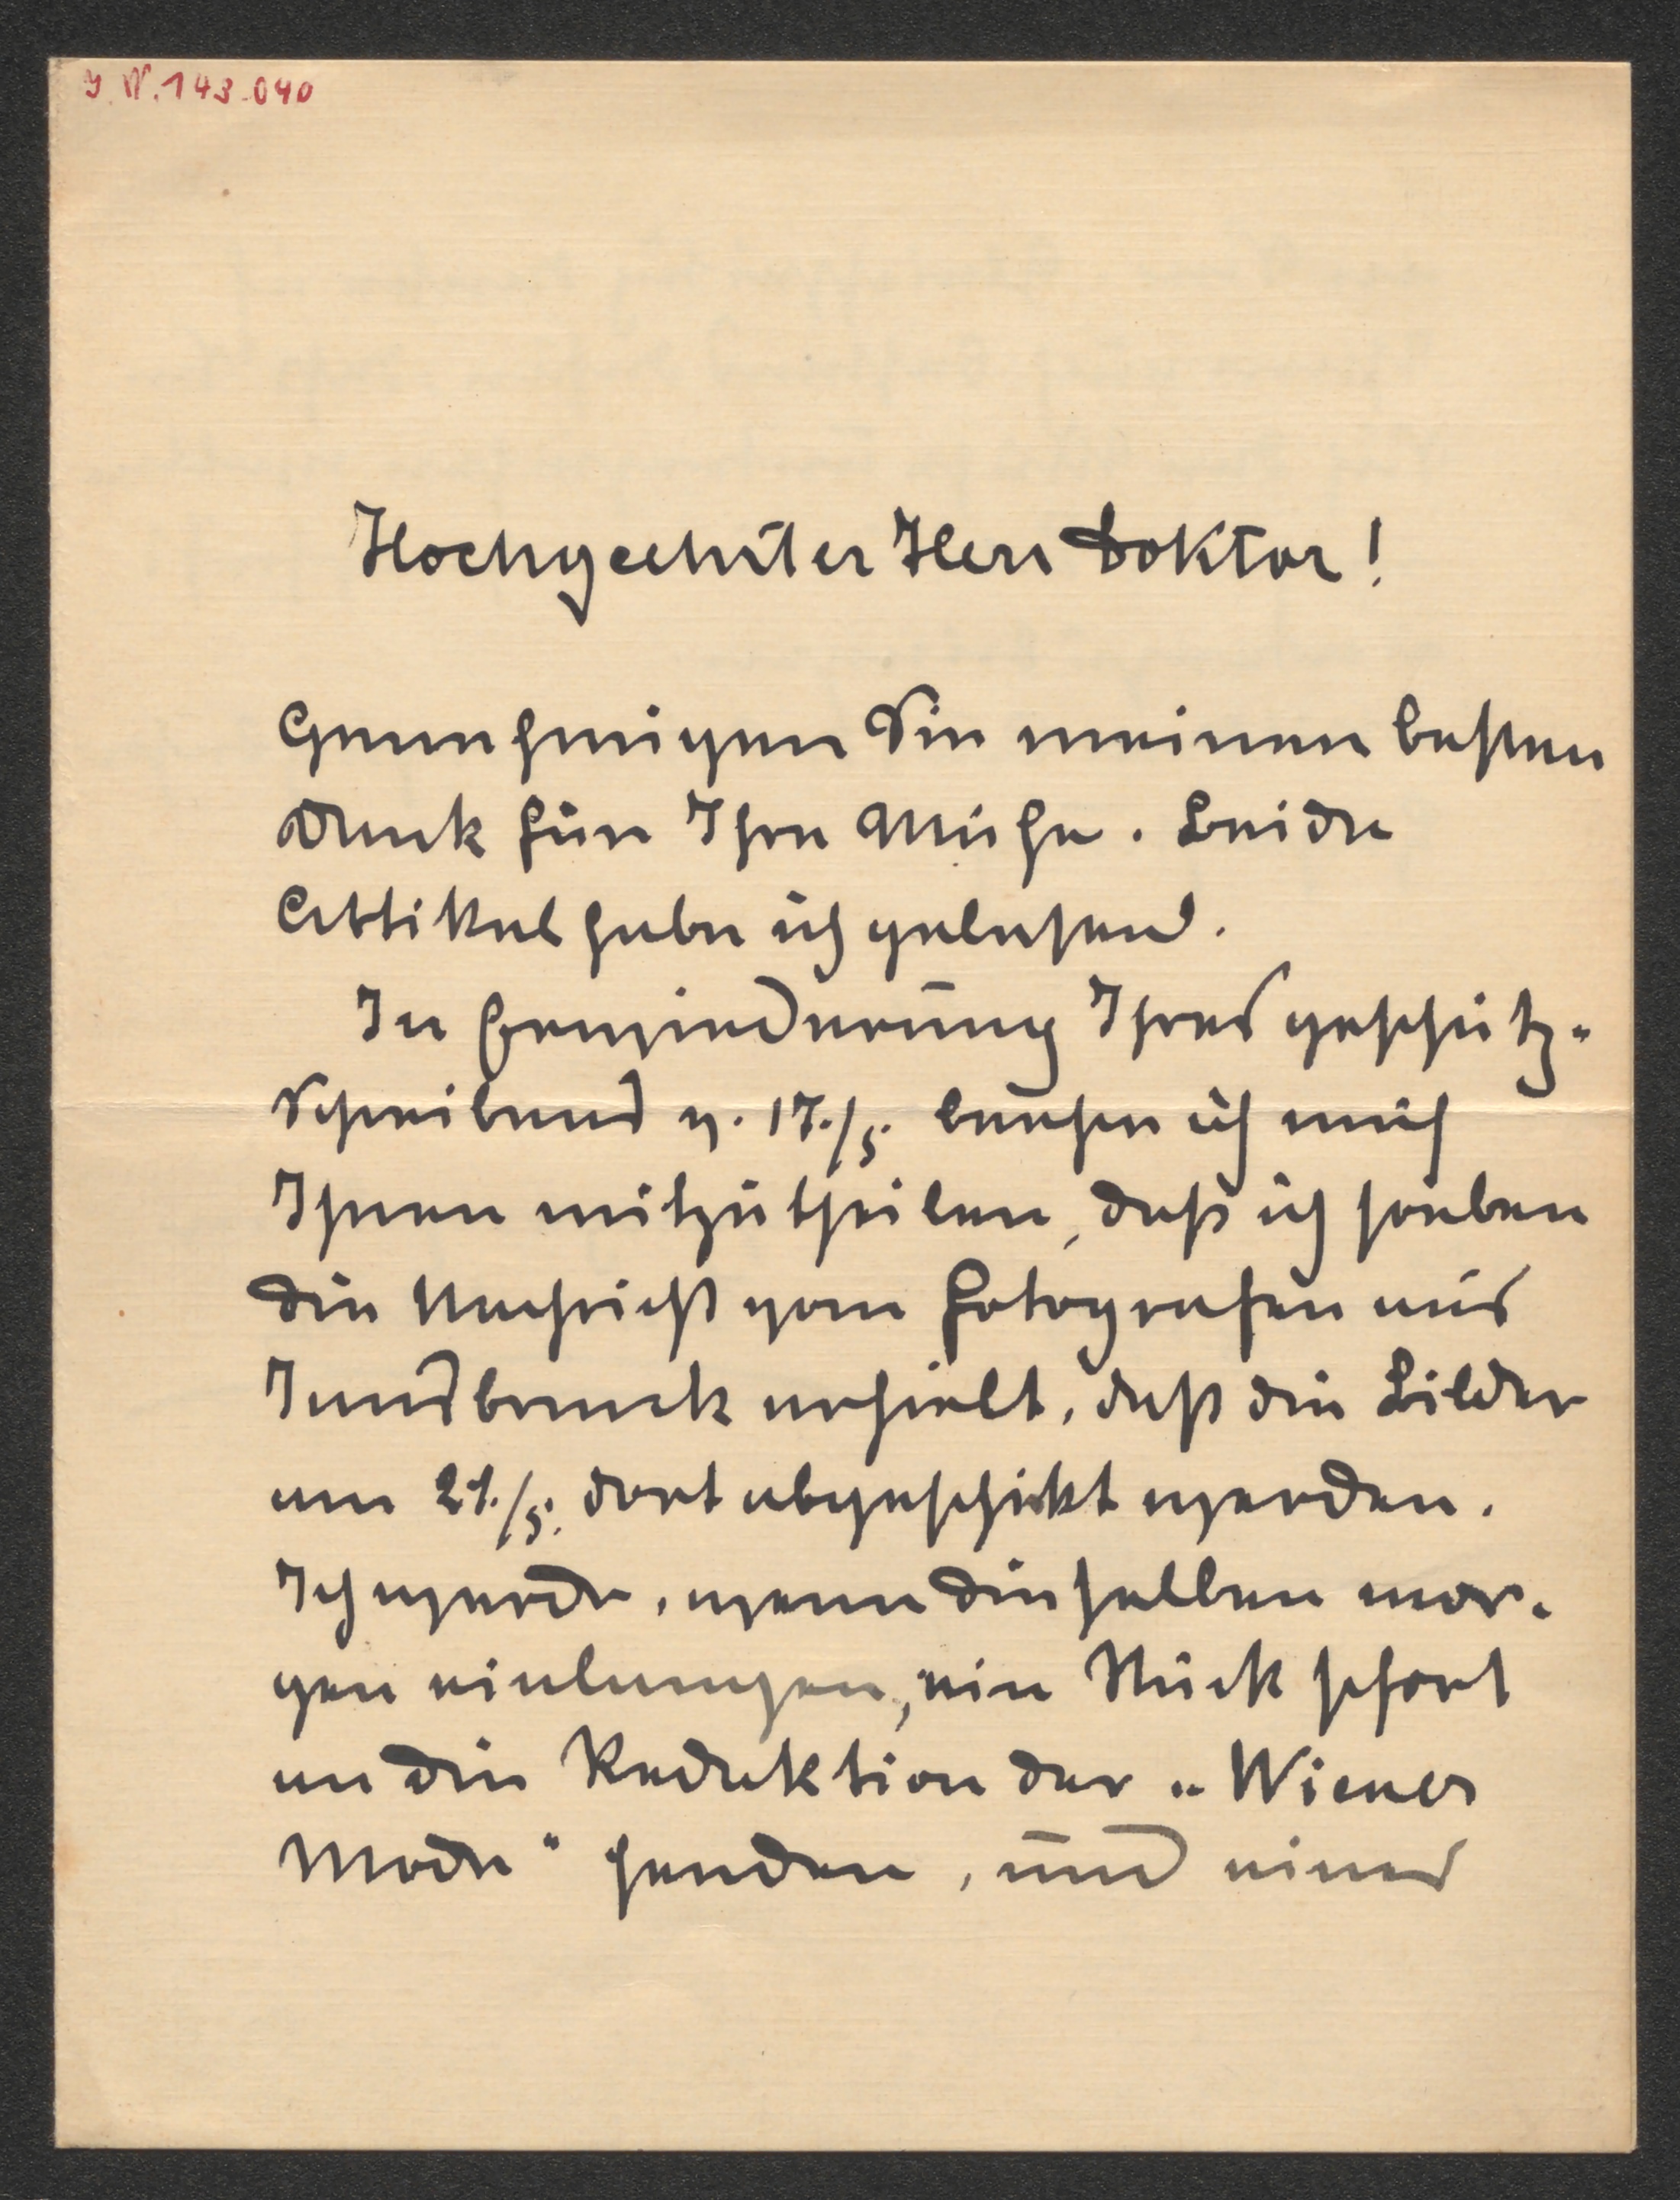 J. N. 143.040
Hochgeehrter Herr Doktor!
Genehmigen Sie meinen besten
Dank für Ihre Mühe. Beide
Artikel habe ich gelesen.
In Erwiederung Ihres geschätz-
Schreibens v. 17./5. beehre ich mich
Ihnen mitzutheilen, daß ich soeben
die Nachricht vom Fotografen aus
Innsbruck erhielt, daß die Bilder
am 21./5. dort abgeschickt werden.
Ich werde, wenn dieselben mor-
gen einlangen, ein Stück sofort
an die Redaktion der „Wiener
Mode" senden, und eines